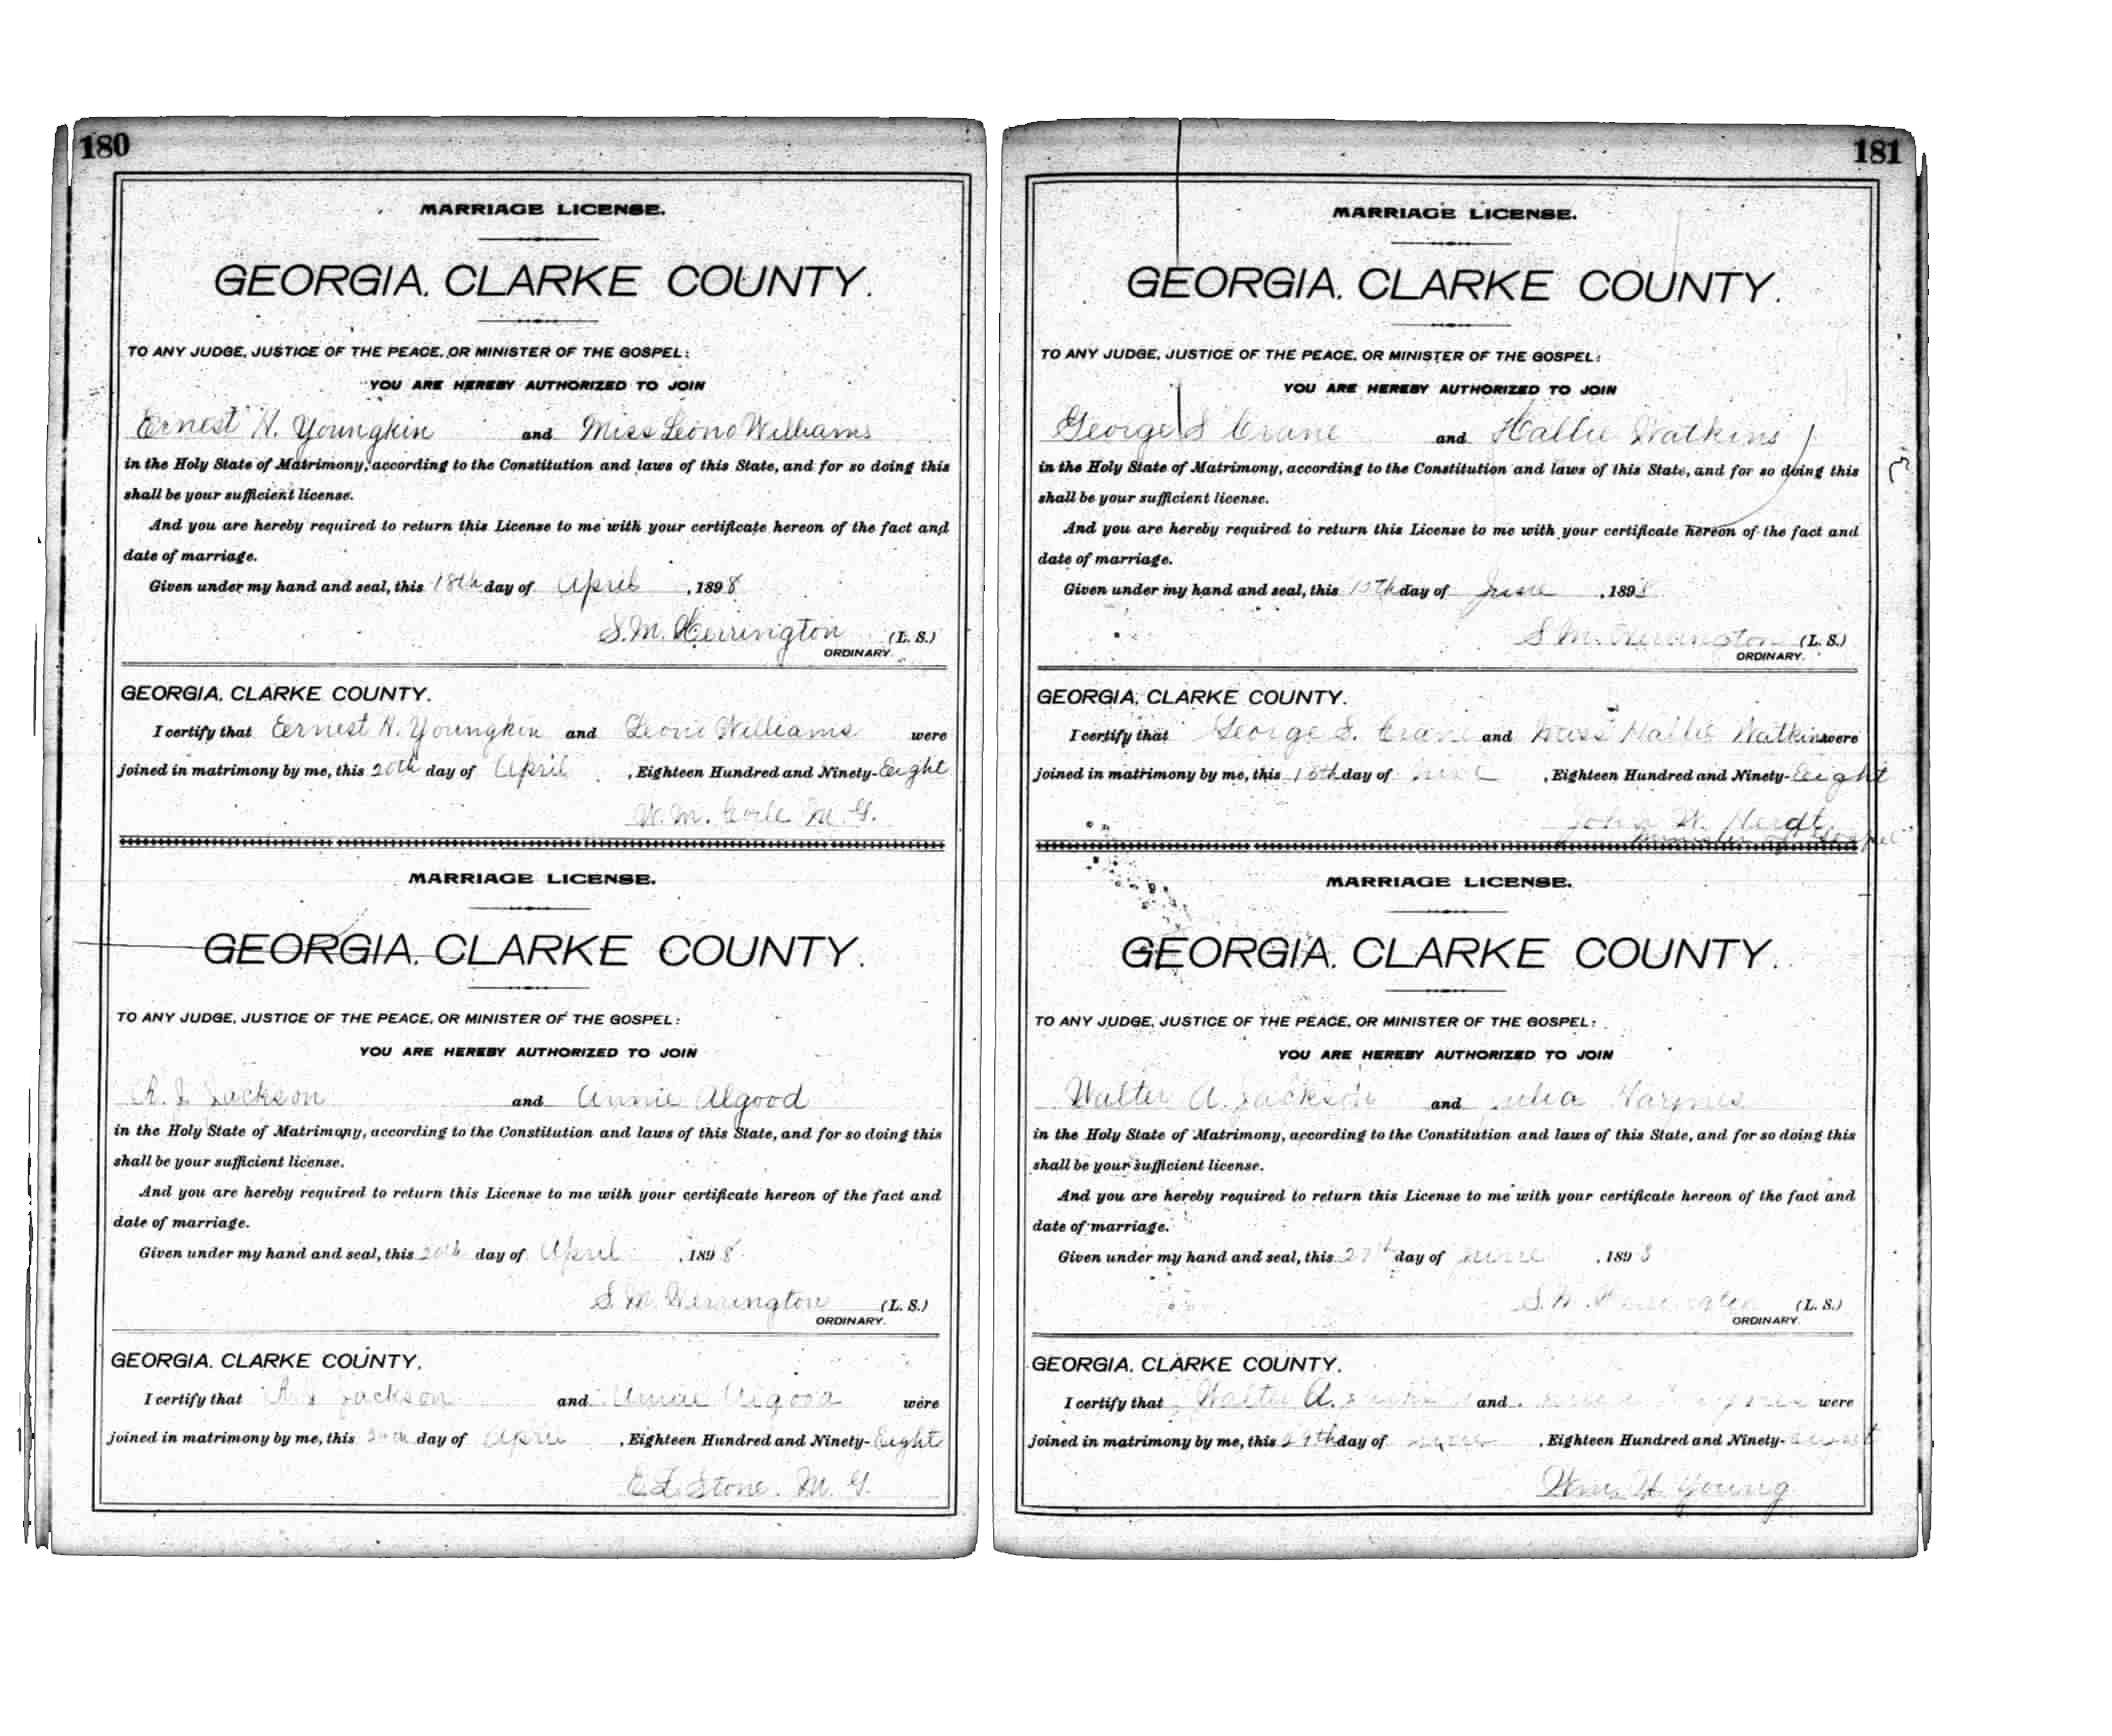 180
MARRIAGE LICENSE.
GEORGIA, CLARKE COUNTY.
TO ANY JUDGE, JUSTICE OF THE PEACE, OR MINISTER OF THE GOSPEL:
YOU ARE HEREBY AUTHORIZED TO JOIN
Ernest H. Youngkin and Miss Leono Williams
in the Holy State of Matrimony, according to the Constitution and laws of this State, and for so doing this
shall be your sufficient license.
And you are hereby required to return this License to me with your certificate hereon of the fact and
date of marriage.
Given under my hand and seal, this 18th day of April, 1898
S. M. Herrington (L. S.)
ORDINARY.
GEORGIA, CLARKE COUNTY.
I certify that Ernest H. Youngkin and Leoni Williams were
joined in matrimony by me, this 20th day of April, Eighteen Hundred and Ninety-Eight
W. M. M. G.
MARRIAGE LICENSE.
GEORGIA, CLARKE COUNTY.
TO ANY JUDGE, JUSTICE OF THE PEACE, OR MINISTER OF THE GOSPEL:
YOU ARE HEREBY AUTHORIZED TO JOIN
Jackson and Annie Algood
in the Holy State of Matrimony, according to the Constitution and laws of this State, and for so doing this
shall be your sufficient license.
And you are hereby required to return this License to me with your certificate hereon of the fact and
date of marriage.
Given under my hand and seal, this 20th day of April, 1898
S. M. Herrington (L. S.)
ORDINARY.
GEORGIA, CLARKE COUNTY.
I certify that Jackson and Annie Algood were
joined in matrimony by me, this 20th day of April, Eighteen Hundred and Ninety-Eight
E. L. Stone. M. G.
181
MARRIAGE LICENSE.
GEORGIA, CLARKE COUNTY.
TO ANY JUDGE, JUSTICE OF THE PEACE, OR MINISTER OF THE GOSPEL:
YOU ARE HEREBY AUTHORIZED TO JOIN
George S Crane and Hallie Watkins
in the Holy State of Matrimony, according to the Constitution and laws of this State, and for so doing this
shall be your sufficient license.
And you are hereby required to return this License to me with your certificate hereon of the fact and
date of marriage.
Given under my hand and seal, this 15th day of June, 1898
S. M. Herrington (L. S.)
ORDINARY.
GEORGIA, CLARKE COUNTY.
I certify that George S. Crane and Miss Hallie Watkins were
joined in matrimony by me, this 15th day of June, Eighteen Hundred and Ninety-Eight
John W. Heidt
Minister of Gospel
MARRIAGE LICENSE.
GEORGIA, CLARKE COUNTY.
TO ANY JUDGE, JUSTICE OF THE PEACE, OR MINISTER OF THE GOSPEL:
YOU ARE HEREBY AUTHORIZED TO JOIN
Walter A. Jackson and Julia Haynes
in the Holy State of Matrimony, according to the Constitution and laws of this State, and for so doing this
shall be your sufficient license.
And you are hereby required to return this License to me with your certificate hereon of the fact and
date of marriage.
Given under my hand and seal, this 27th day of June, 1898
S. M. Herrington (L. S.)
ORDINARY.
GEORGIA, CLARKE COUNTY.
I certify that Walter A. Jackson and were
joined in matrimony by me, this 29th day of June, Eighteen Hundred and Ninety-Eight
Wm. H. Young